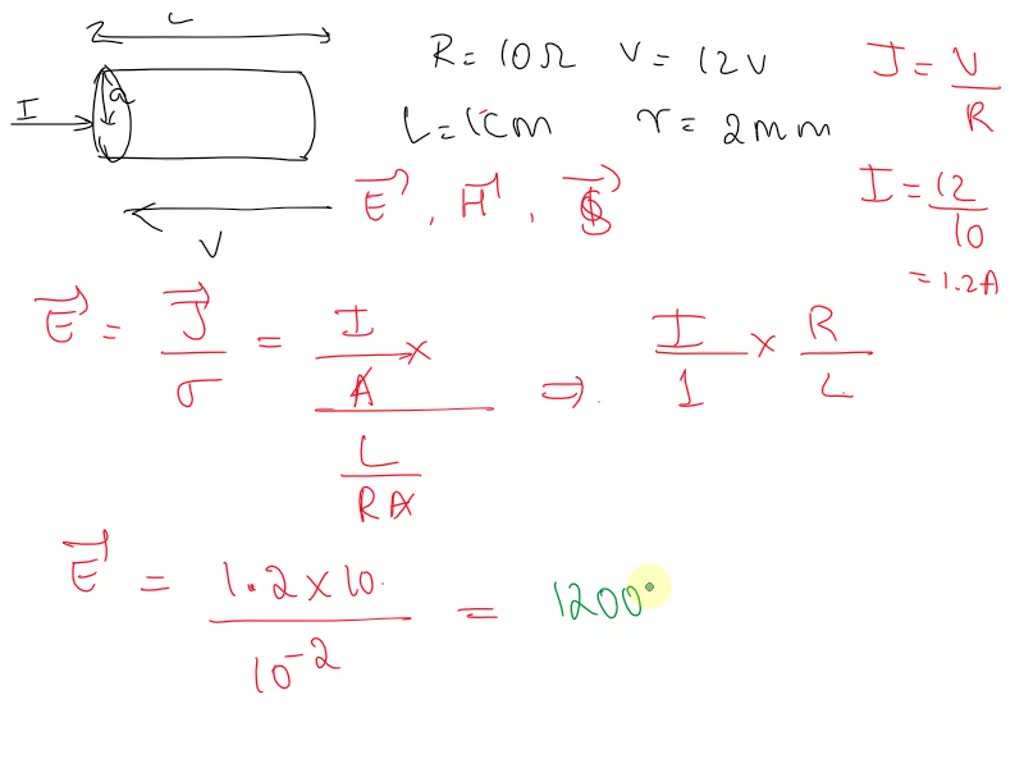 L
I a
V
R = 10Ω V = 12V
L = 1cm r = 2mm
E⃗, H⃗, S⃗
J = V/R
I = 12/10
= 1.2A
E⃗ = J⃗/σ = (I/A ×)/(L/RA) ⇒ I/1 × R/L
E⃗ = 1.2 × 10/10⁻² = 1200